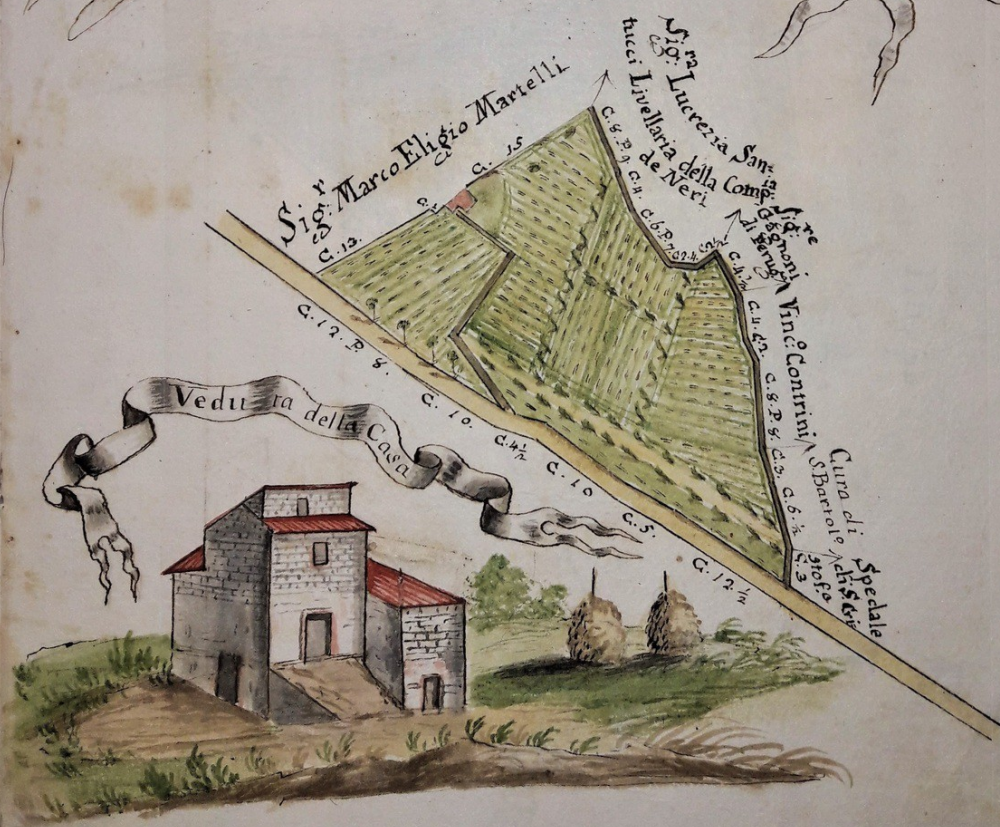 Sig:r Marco Eligio Martelli
Sig:ra Lucrezia San=
tucci Livellaria della Comp:ia
de Neri
Sig:re
Gognoni
di Perugi
Vinc:o Contrini
Cura di
S. Bartol:o
Spedale
di S. Gio
C. 13.
C. 2
C. 15
C. 8. P. 9
C. 4
C. 6. P. 7.
C. 2. 4.
C. 2 ½
C. 4. ½
C. 4.
C. 2.
C. 8. P. 8.
C. 3.
C. 6. ½
C. 3
C. 12. P. 8.
C. 10.
C. 4 ½
C. 10
C. 5.
C. 12 ½
Veduta della Casa